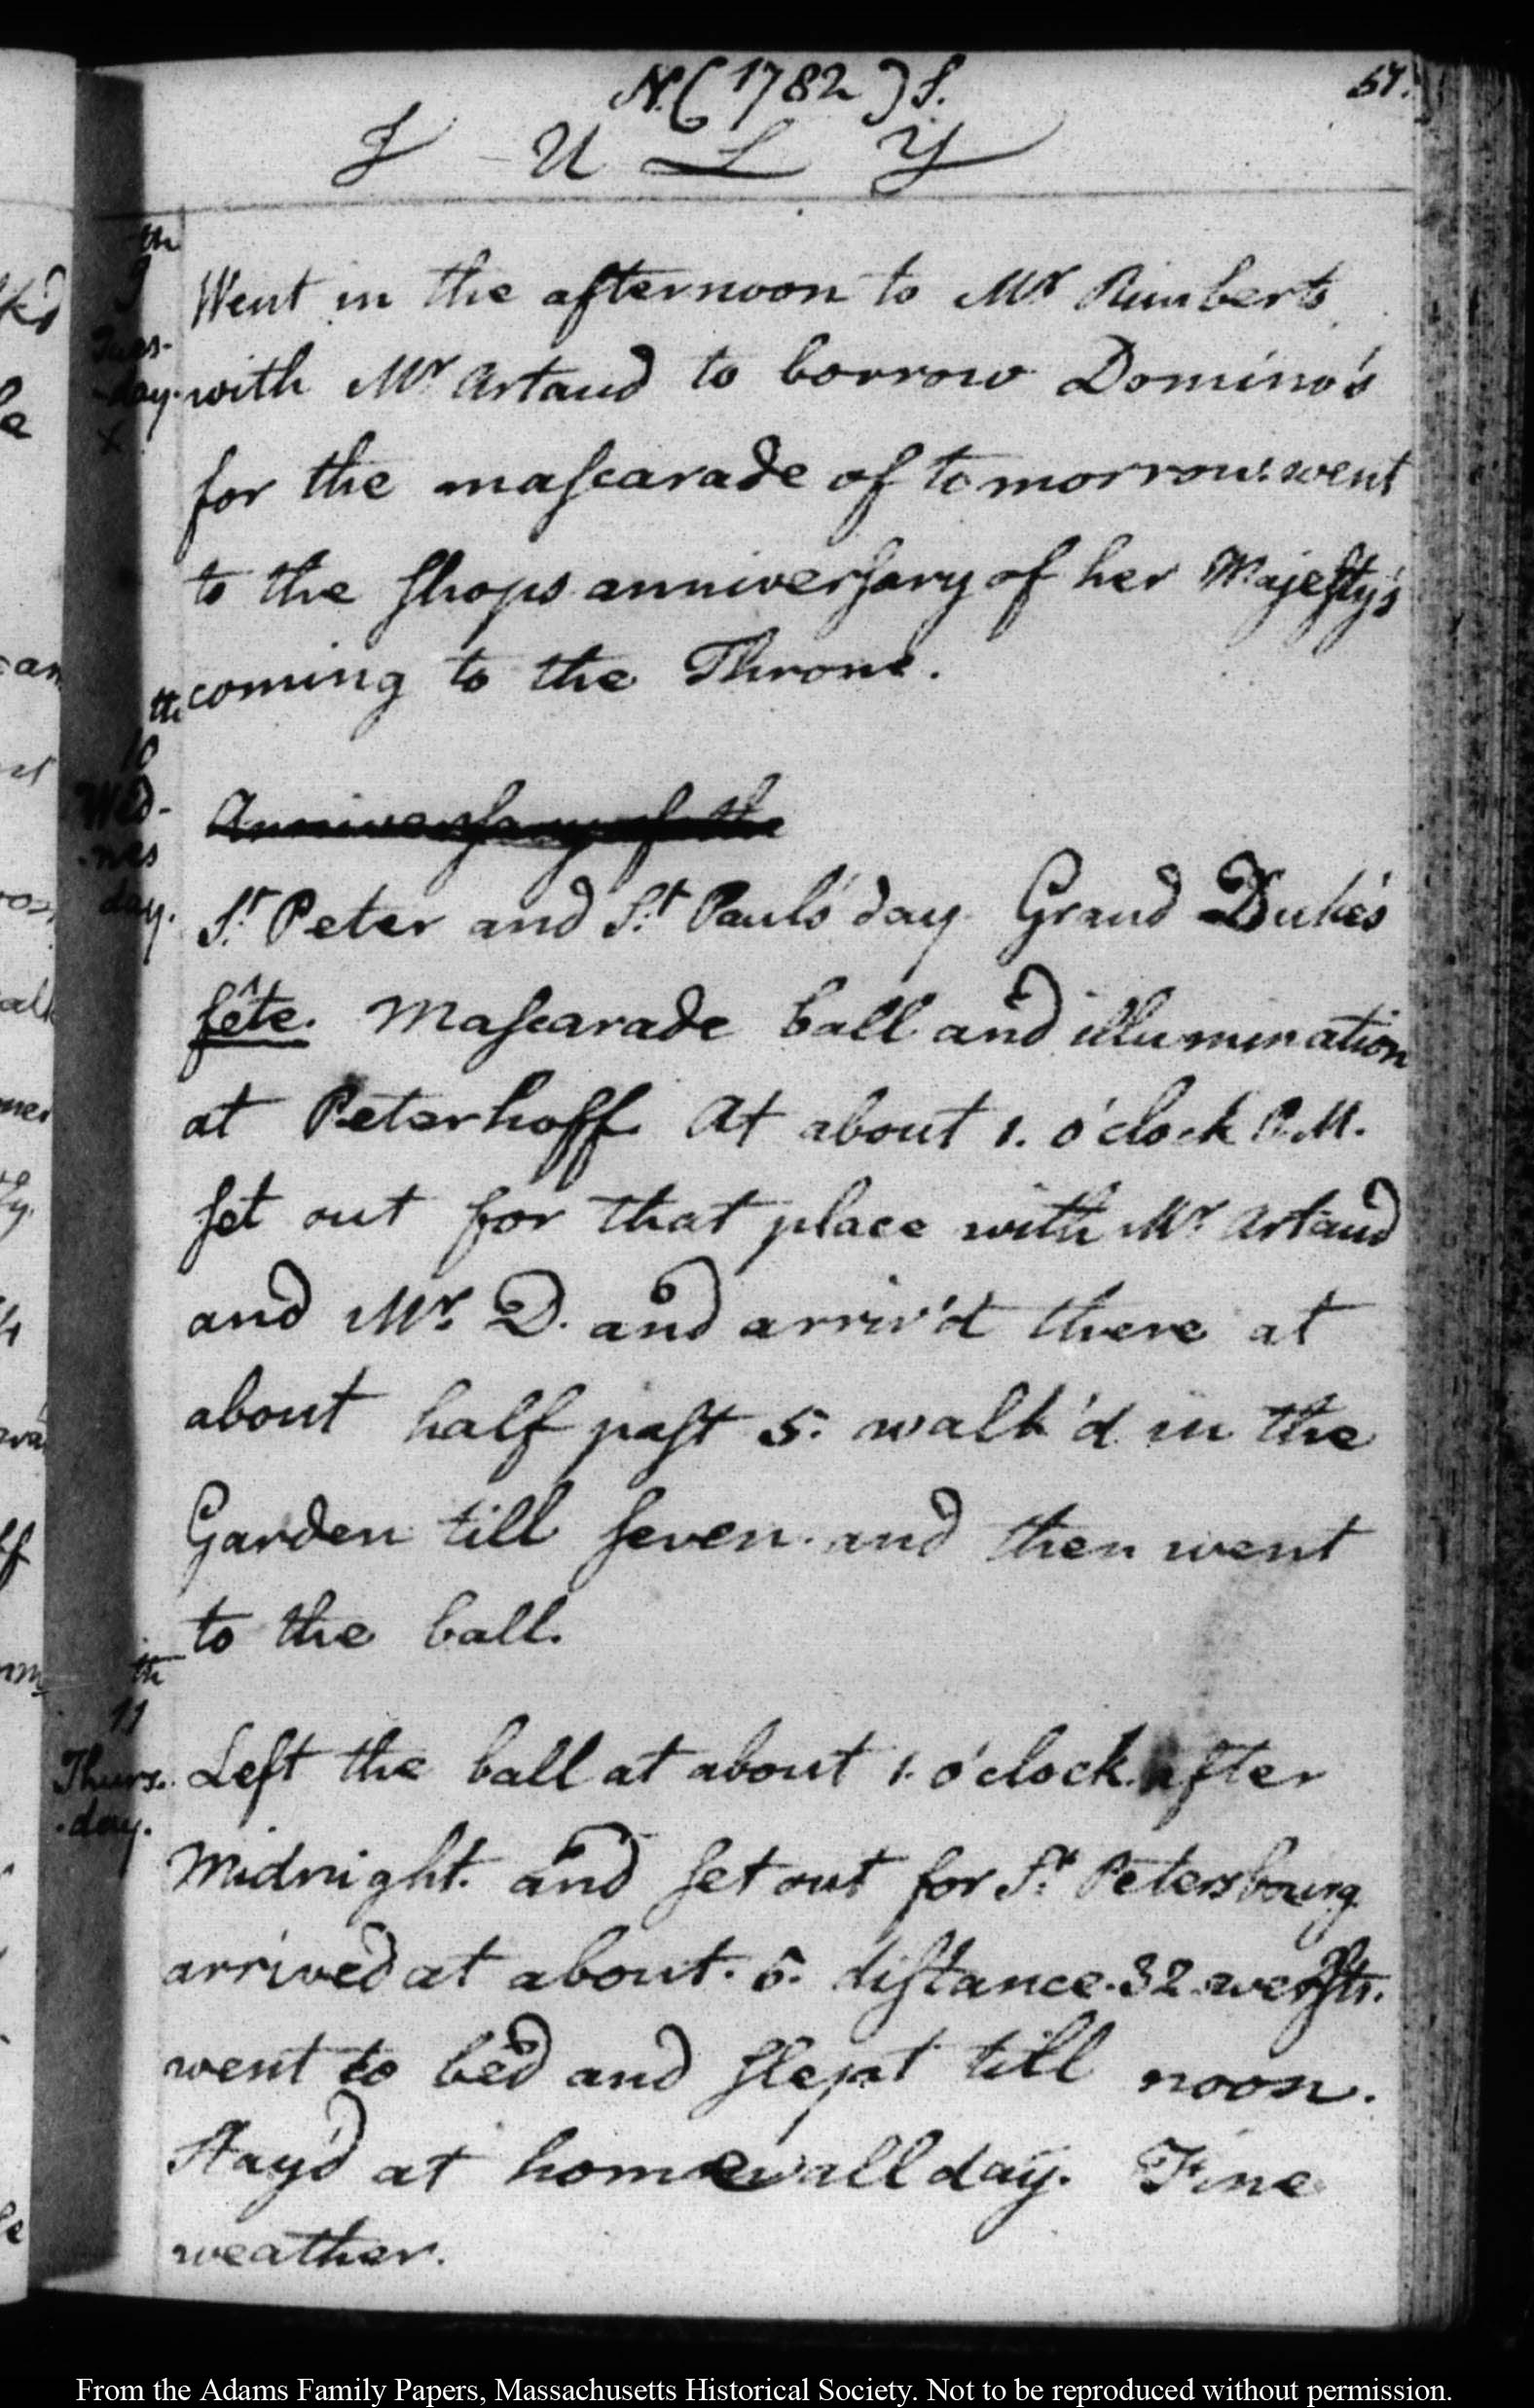 N. (1782) S.
57.
J U L Y
th
9
Tues-
-day.
x
Went in the afternoon to Mr Rimberts
with Mr Artaud to borrow Domino's
for the mascarade of tomorrow. went
to the shops anniversary of her Majesty's
coming to the Throne.
th
10
Wed-
-nes
day.
Anniversary of the
St. Peter and St. Paul's day Grand Duke's
fête. Mascarade ball and illumination
at Peterhoff. At about 1. o'clock P.M.
set out for that place with Mr Artaud
and Mr. D. and arriv'd there at
about half past 5. walk'd in the
Garden till seven. and then went
to the ball.
th
11
Thurs.
-day.
Left the ball at about 1. o'clock. after
Midnight. and set out for St. Petersbourg
arrived at about. 5. distance. 32. wersts.
went to bed and slept till noon.
Stay'd at home all day. Fine
weather.
From the Adams Family Papers, Massachusetts Historical Society. Not to be reproduced without permission.